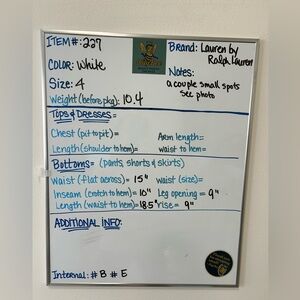 ITEM#: 227
Brand: Lauren by
Ralph Lauren
COLOR: White
Notes:
a couple small spots
See photo
Size: 4
Weight (before pkg): 10.4
Tops & Dresses=
Chest (pit to pit)=
Arm length=
Length (shoulder to hem)=
waist to hem=
Bottoms= (pants, shorts & skirts)
Waist (flat across)= 15"
waist (size)=
Inseam (crotch to hem)= 10"
Leg opening= 9"
Length (waist to hem)= 18.5"
rise= 9"
ADDITIONAL INFO:
Internal: #B #E